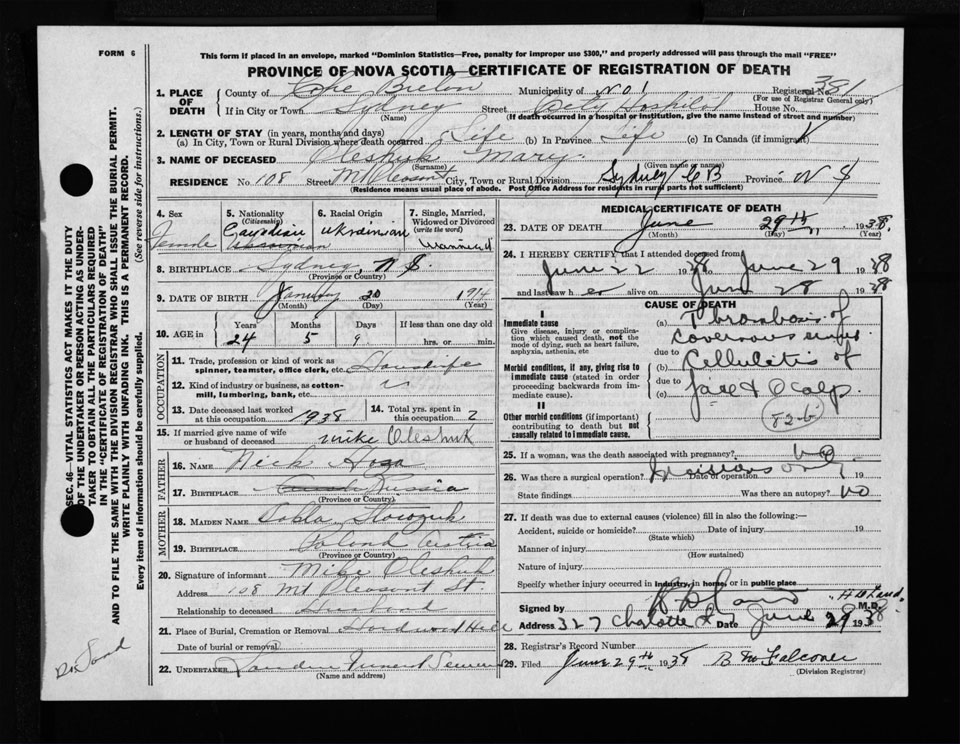 FORM 6
This form if placed in an envelope, marked "Dominion Statistics—Free, penalty for improper use $300," and properly addressed will pass through the mail "FREE"
PROVINCE OF NOVA SCOTIA—CERTIFICATE OF REGISTRATION OF DEATH
1. PLACE OF DEATH County of Cape Breton Municipality of No 1 Registered No. 381
(For use of Registrar General only)
If in City or Town Sydney Street City Hospital House No.
(Name) (If death occurred in a hospital or institution, give the name instead of street and number)
2. LENGTH OF STAY (in years, months and days)
(a) In City, Town or Rural Division where death occurred Life (b) In Province Life (c) In Canada (if immigrant)
3. NAME OF DECEASED Oleshuk Mary
(Surname) (Given name or names)
RESIDENCE No. 108 Street Mt Pleasant City, Town or Rural Division Sydney C B Province N S
(Residence means usual place of abode. Post Office Address for residents in rural parts not sufficient)
4. Sex Female
5. Nationality (Citizenship) Canadian
6. Racial Origin Ukrainian
7. Single, Married, Widowed or Divorced (write the word) Married
8. BIRTHPLACE Sydney, N S.
(Province or Country)
9. DATE OF BIRTH January 20 1914
(Month) (Day) (Year)
10. AGE in Years 24 Months 5 Days 9 If less than one day old hrs. or min.
OCCUPATION
11. Trade, profession or kind of work as spinner, teamster, office clerk, etc. Housewife
12. Kind of industry or business, as cotton-mill, lumbering, bank, etc. "
13. Date deceased last worked at this occupation 1938
14. Total yrs. spent in this occupation 2
15. If married give name of wife or husband of deceased Mike Oleshuk
FATHER
16. NAME Nick
17. BIRTHPLACE Russia
(Province or Country)
MOTHER
18. MAIDEN NAME
19. BIRTHPLACE Poland Austria
(Province or Country)
20. Signature of informant Mike Oleshuk
Address 108 Mt Pleasant St.
Relationship to deceased Husband
21. Place of Burial, Cremation or Removal Hardwood Hill
Date of burial or removal
22. UNDERTAKER Funeral
(Name and address)
MEDICAL CERTIFICATE OF DEATH
23. DATE OF DEATH June 29th 1938
(Month) (Day) (Year)
24. I HEREBY CERTIFY that I attended deceased from
June 22 1938 to June 29 1938
and last saw her alive on June 28 1938
CAUSE OF DEATH
I
Immediate cause
Give disease, injury or complication which caused death, not the mode of dying, such as heart failure, asphyxia, asthenia, etc
(a) Thrombosis of Cavernous sinus
due to
Morbid conditions, if any, giving rise to immediate cause (stated in order proceeding backwards from immediate cause).
(b) Cellulitis of
due to
(c) face & scalp.
II
Other morbid conditions (if important) contributing to death but not causally related to immediate cause.
82-b
25. If a woman, was the death associated with pregnancy? No
26. Was there a surgical operation? Incisions only Date of operation 19
State findings Was there an autopsy? No
27. If death was due to external causes (violence) fill in also the following:—
Accident, suicide or homicide? Date of injury 19
(State which)
Manner of injury
(How sustained)
Nature of injury
Specify whether injury occurred in industry, in home, or in public place
Signed by M.D.
Address 327 Charlotte St Date June 29 1938
28. Registrar's Record Number
29. Filed June 29th 1938 B M Falconer
(Division Registrar)
SEC. 46—VITAL STATISTICS ACT MAKES IT THE DUTY OF THE UNDERTAKER OR PERSON ACTING AS UNDERTAKER TO OBTAIN ALL THE PARTICULARS REQUIRED IN THE "CERTIFICATE OF REGISTRATION OF DEATH"
AND TO FILE THE SAME WITH THE DIVISION REGISTRAR WHO SHALL ISSUE THE BURIAL PERMIT.
WRITE PLAINLY WITH UNFADING INK. THIS IS A PERMANENT RECORD.
Every item of information should be carefully supplied. (See reverse side for instructions.)